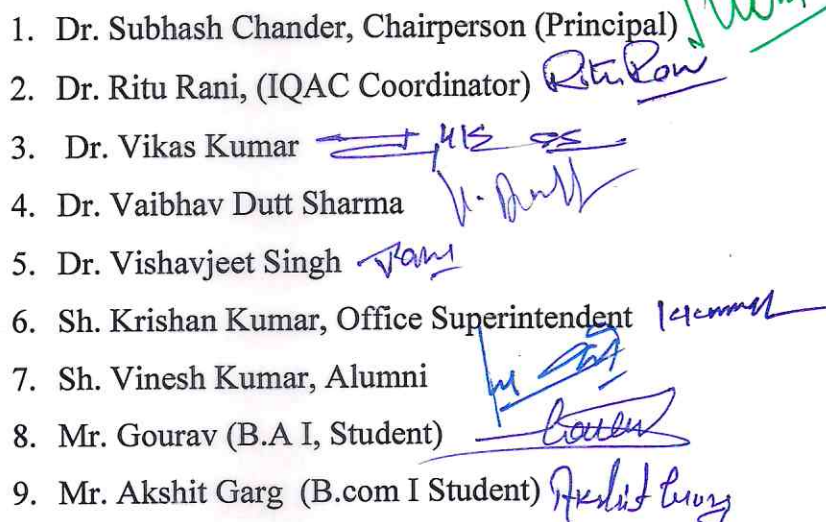 1. Dr. Subhash Chander, Chairperson (Principal)
2. Dr. Ritu Rani, (IQAC Coordinator) Ritu Rani
3. Dr. Vikas Kumar
4. Dr. Vaibhav Dutt Sharma
5. Dr. Vishavjeet Singh
6. Sh. Krishan Kumar, Office Superintendent
7. Sh. Vinesh Kumar, Alumni
8. Mr. Gourav (B.A I, Student)
9. Mr. Akshit Garg (B.com I Student) Akshit Garg